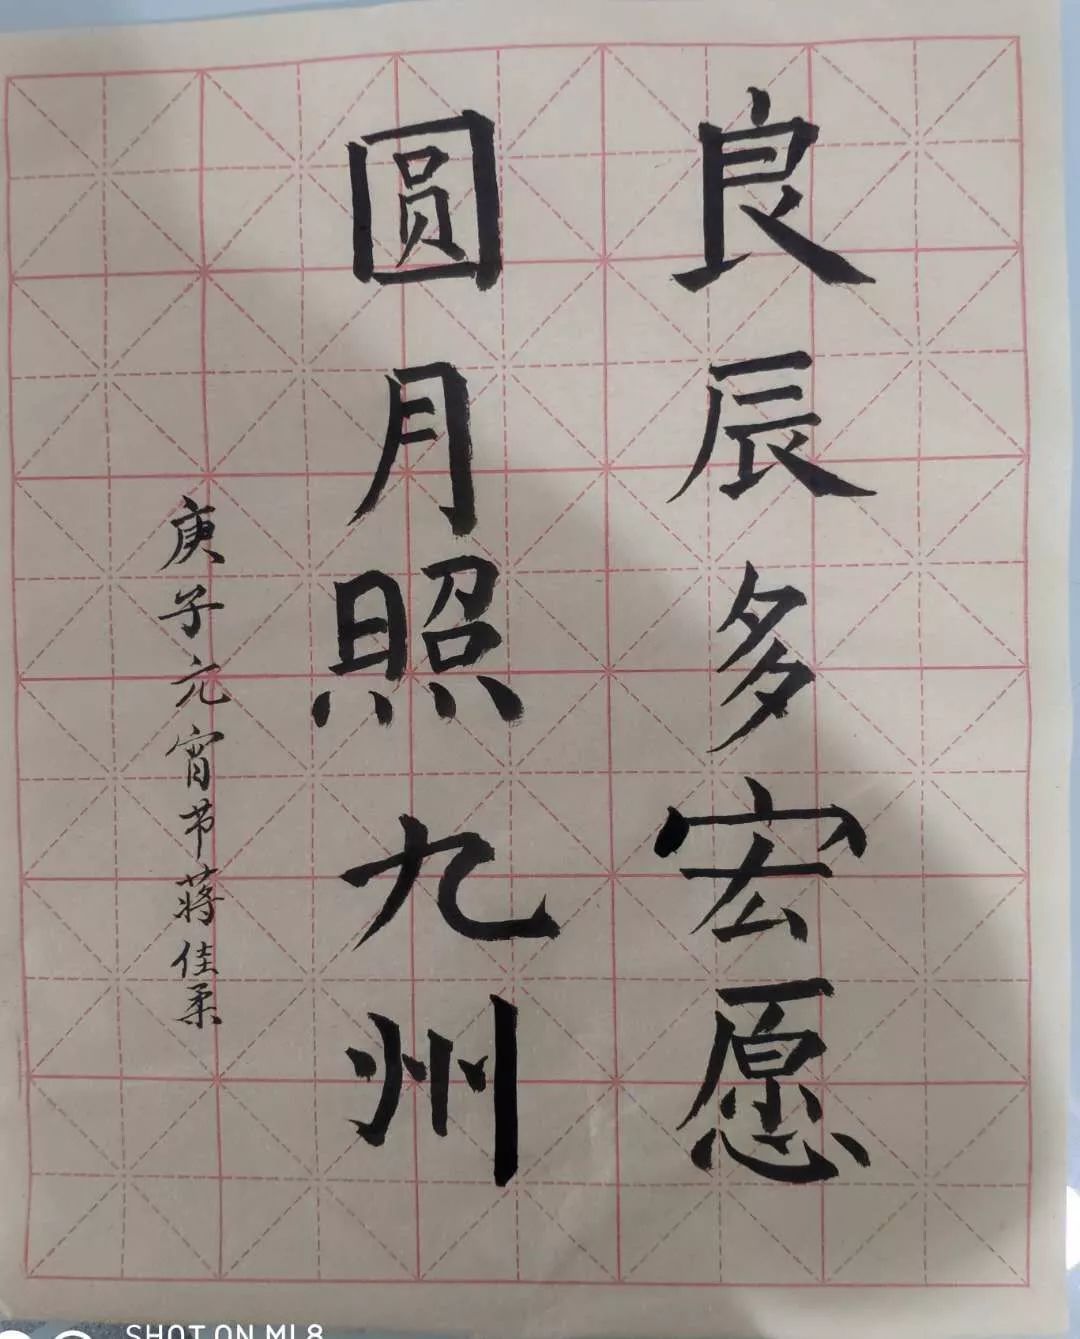 良辰多宏愿
圆月照九州
庚子元宵节蒋佳柔
SHOT ON MI 8